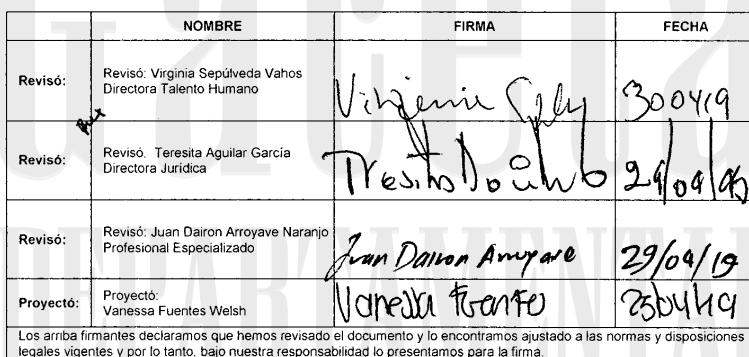 NOMBRE FIRMA FECHA
Revisó: Revisó: Virginia Sepúlveda Vahos
Directora Talento Humano
Virginia 300419
Revisó: Revisó. Teresita Aguilar García
Directora Jurídica
29/04/
Revisó: Revisó: Juan Dairon Arroyave Naranjo
Profesional Especializado
Juan Dairon Arroyave 29/04/19
Proyectó: Proyectó:
Vanessa Fuentes Welsh
Vanessa
Los arriba firmantes declaramos que hemos revisado el documento y lo encontramos ajustado a las normas y disposiciones
legales vigentes y por lo tanto, bajo nuestra responsabilidad lo presentamos para la firma.